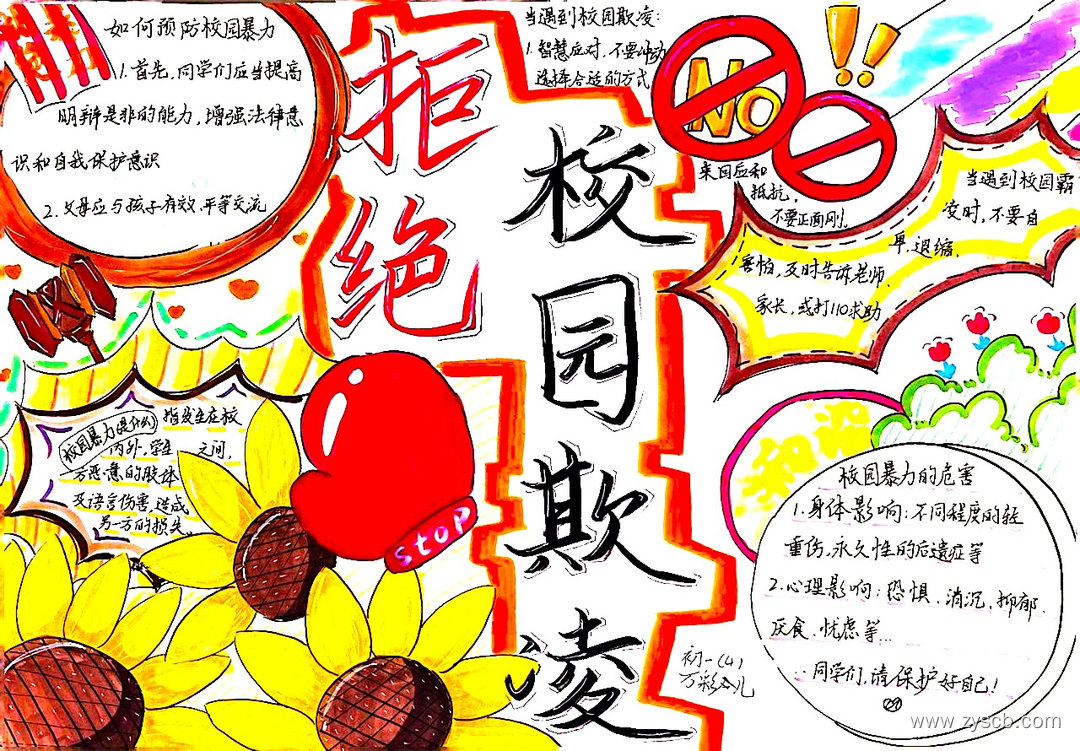 如何预防校园暴力
1.首先，同学们应当提高
明辩是非的能力，增强法律意
识和自我保护意识
2.父母应与孩子有效，平等交流
拒绝
校园欺凌
当遇到校园欺凌：
1.智慧应对，不要冲动
选择合适的方式
来回应和
抵抗，
不要正面刚！
NO
!!
当遇到校园霸
凌时，不要自
卑，退缩，
害怕，及时告诉老师，
家长，或打110求助
校园暴力是什么
指发生在校
内外，学生
之间，
一方恶意的肢体
及语言伤害，造成
另一方的损失。
STOP
校园暴力的危害
1.身体影响：不同程度的轻
重伤，永久性的后遗症等
2.心理影响：恐惧、消沉，抑郁、
厌食、忧虑等...
同学们，请保护好自己！
初一(4)
www.zyscb.com